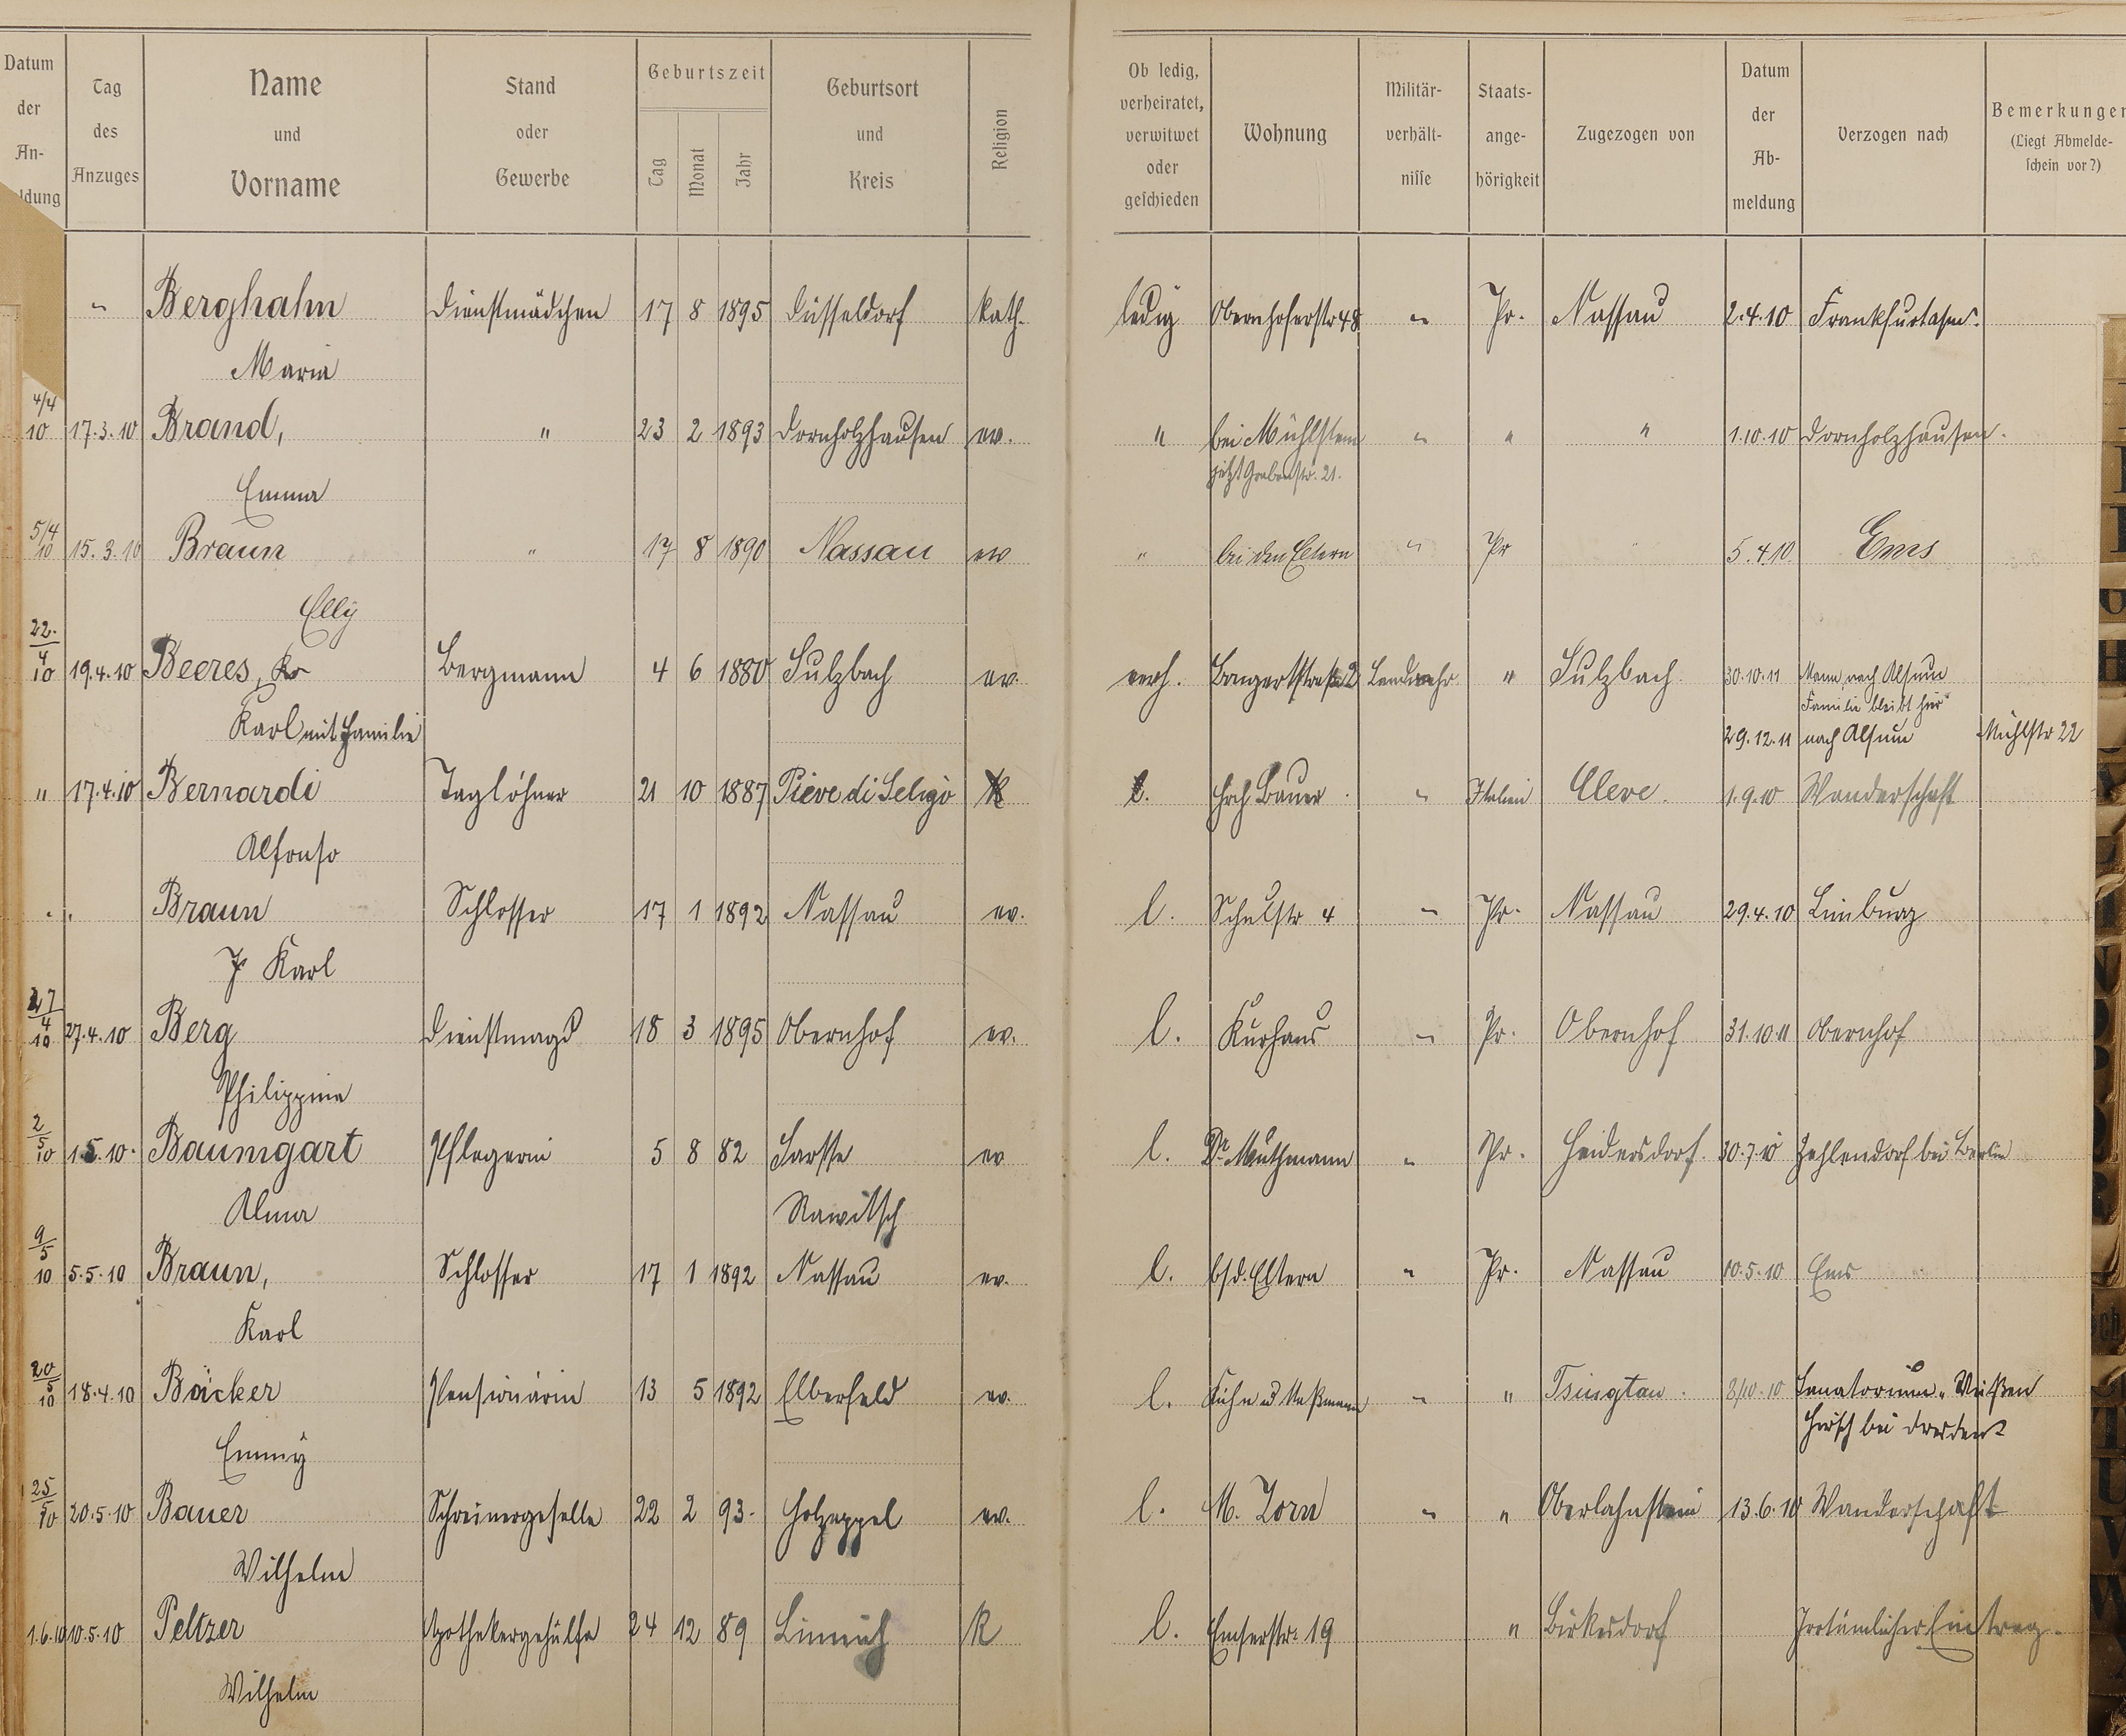 Datum der An-ldung | Tag des Anzuges | Name und Vorname | Stand oder Gewerbe | Geburtszeit Tag Monat Jahr | Geburtsort und Kreis | Religion | Ob ledig, verheiratet, verwitwet oder geschieden | Wohnung | Militär-verhält-nisse | Staats-ange-hörigkeit | Zugezogen von | Datum der Ab-meldung | Verzogen nach | Bemerkungen (Liegt Abmelde-schein vor?)
" Berghahn Dienstmädchen 17 8 1895 Düsseldorf kath. ledig Obernhoferstr 48 " Pr. Nassau 2.4.10
Maria
4/4 10 17.3.10 Brand, " 23 2 1893 Dornholzhausen ev. " bei Mühlstein " " " 1.10.10 Dornholzhausen.
jetzt Grabenstr. 21.
Emma
5/4 10 15.3.10 Braun " 17 8 1890 Nassau ev " bei den Eltern " Pr " 5.4.10. Ems
Elly
22. 4 10 19.4.10 Beeres, Bergmann 4 6 1880 Sulzbach ev. verh. Bongertstraße 2 Landwehr " Sulzbach 30.10.11 Mann nach Alsum
Familie bleibt hier
Karl mit Familie 29.12.11 nach Alsum Mühlstr 22
" 17.4.10 Bernardi Taglöhner 21 10 1887 Pieve di Seligo K l. Hrch Bauer " Italien Cleve. 1.9.10 Wanderschaft
Alfonso
" Braun Schlosser 17 1 1892 Nassau ev. l. Schulstr 4 " Pr. Nassau 29.4.10 Limburg
Karl
27 4 10 27.4.10 Berg Dienstmagd 18 3 1895 Obernhof ev. l. Kurhaus " Pr. Obernhof 31.10.11 Obernhof
Philippine
2 5 10 1.5.10. Baumgart Pflegerin 5 8 82 Sarsse ev l. Dr. Muthmann " Pr. Heidersdorf. 30.7.10 Zehlendorf bei Berlin
Alma Rawitsch
9 5 10 5.5.10 Braun, Schlosser 17 1 1892 Nassau ev. l. b/d. Eltern " Pr. Nassau 10.5.10 Ems
Karl
20 5 10 18.4.10 Böcker Pensionärin 13 5 1892 Elberfeld ev. l. " " Tsingtau. 8/10.10 Sanatorium "Weißen
Hirsch bei Dresden"
Emmy
25 5 10 20.5.10 Bauer Schreinergeselle 22 2 93. Holzappel ev. l. M. Zorn " " Oberlahnstein 13.6.10 Wanderschaft
Wilhelm
1.6.10 10.5.10 Peltzer Apothekergehülfe 24 12 89 Linnich K l. Emserstr. 19 " Birkesdorf Irrtümlicher Eintrag.
Wilhelm